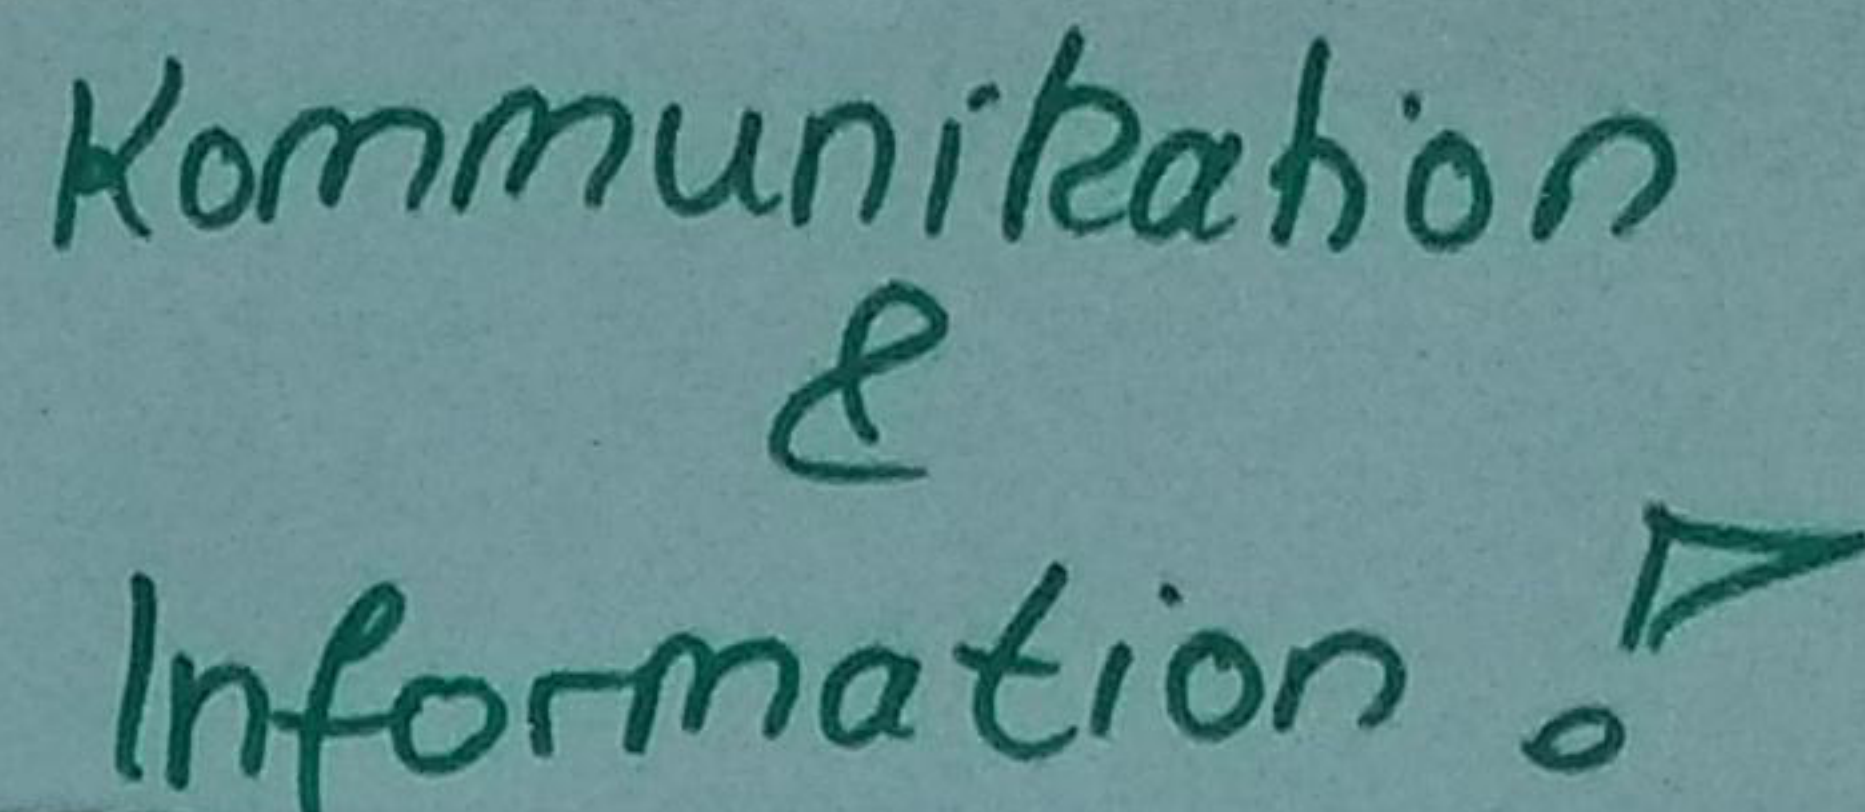 Kommunikation
&
Information!